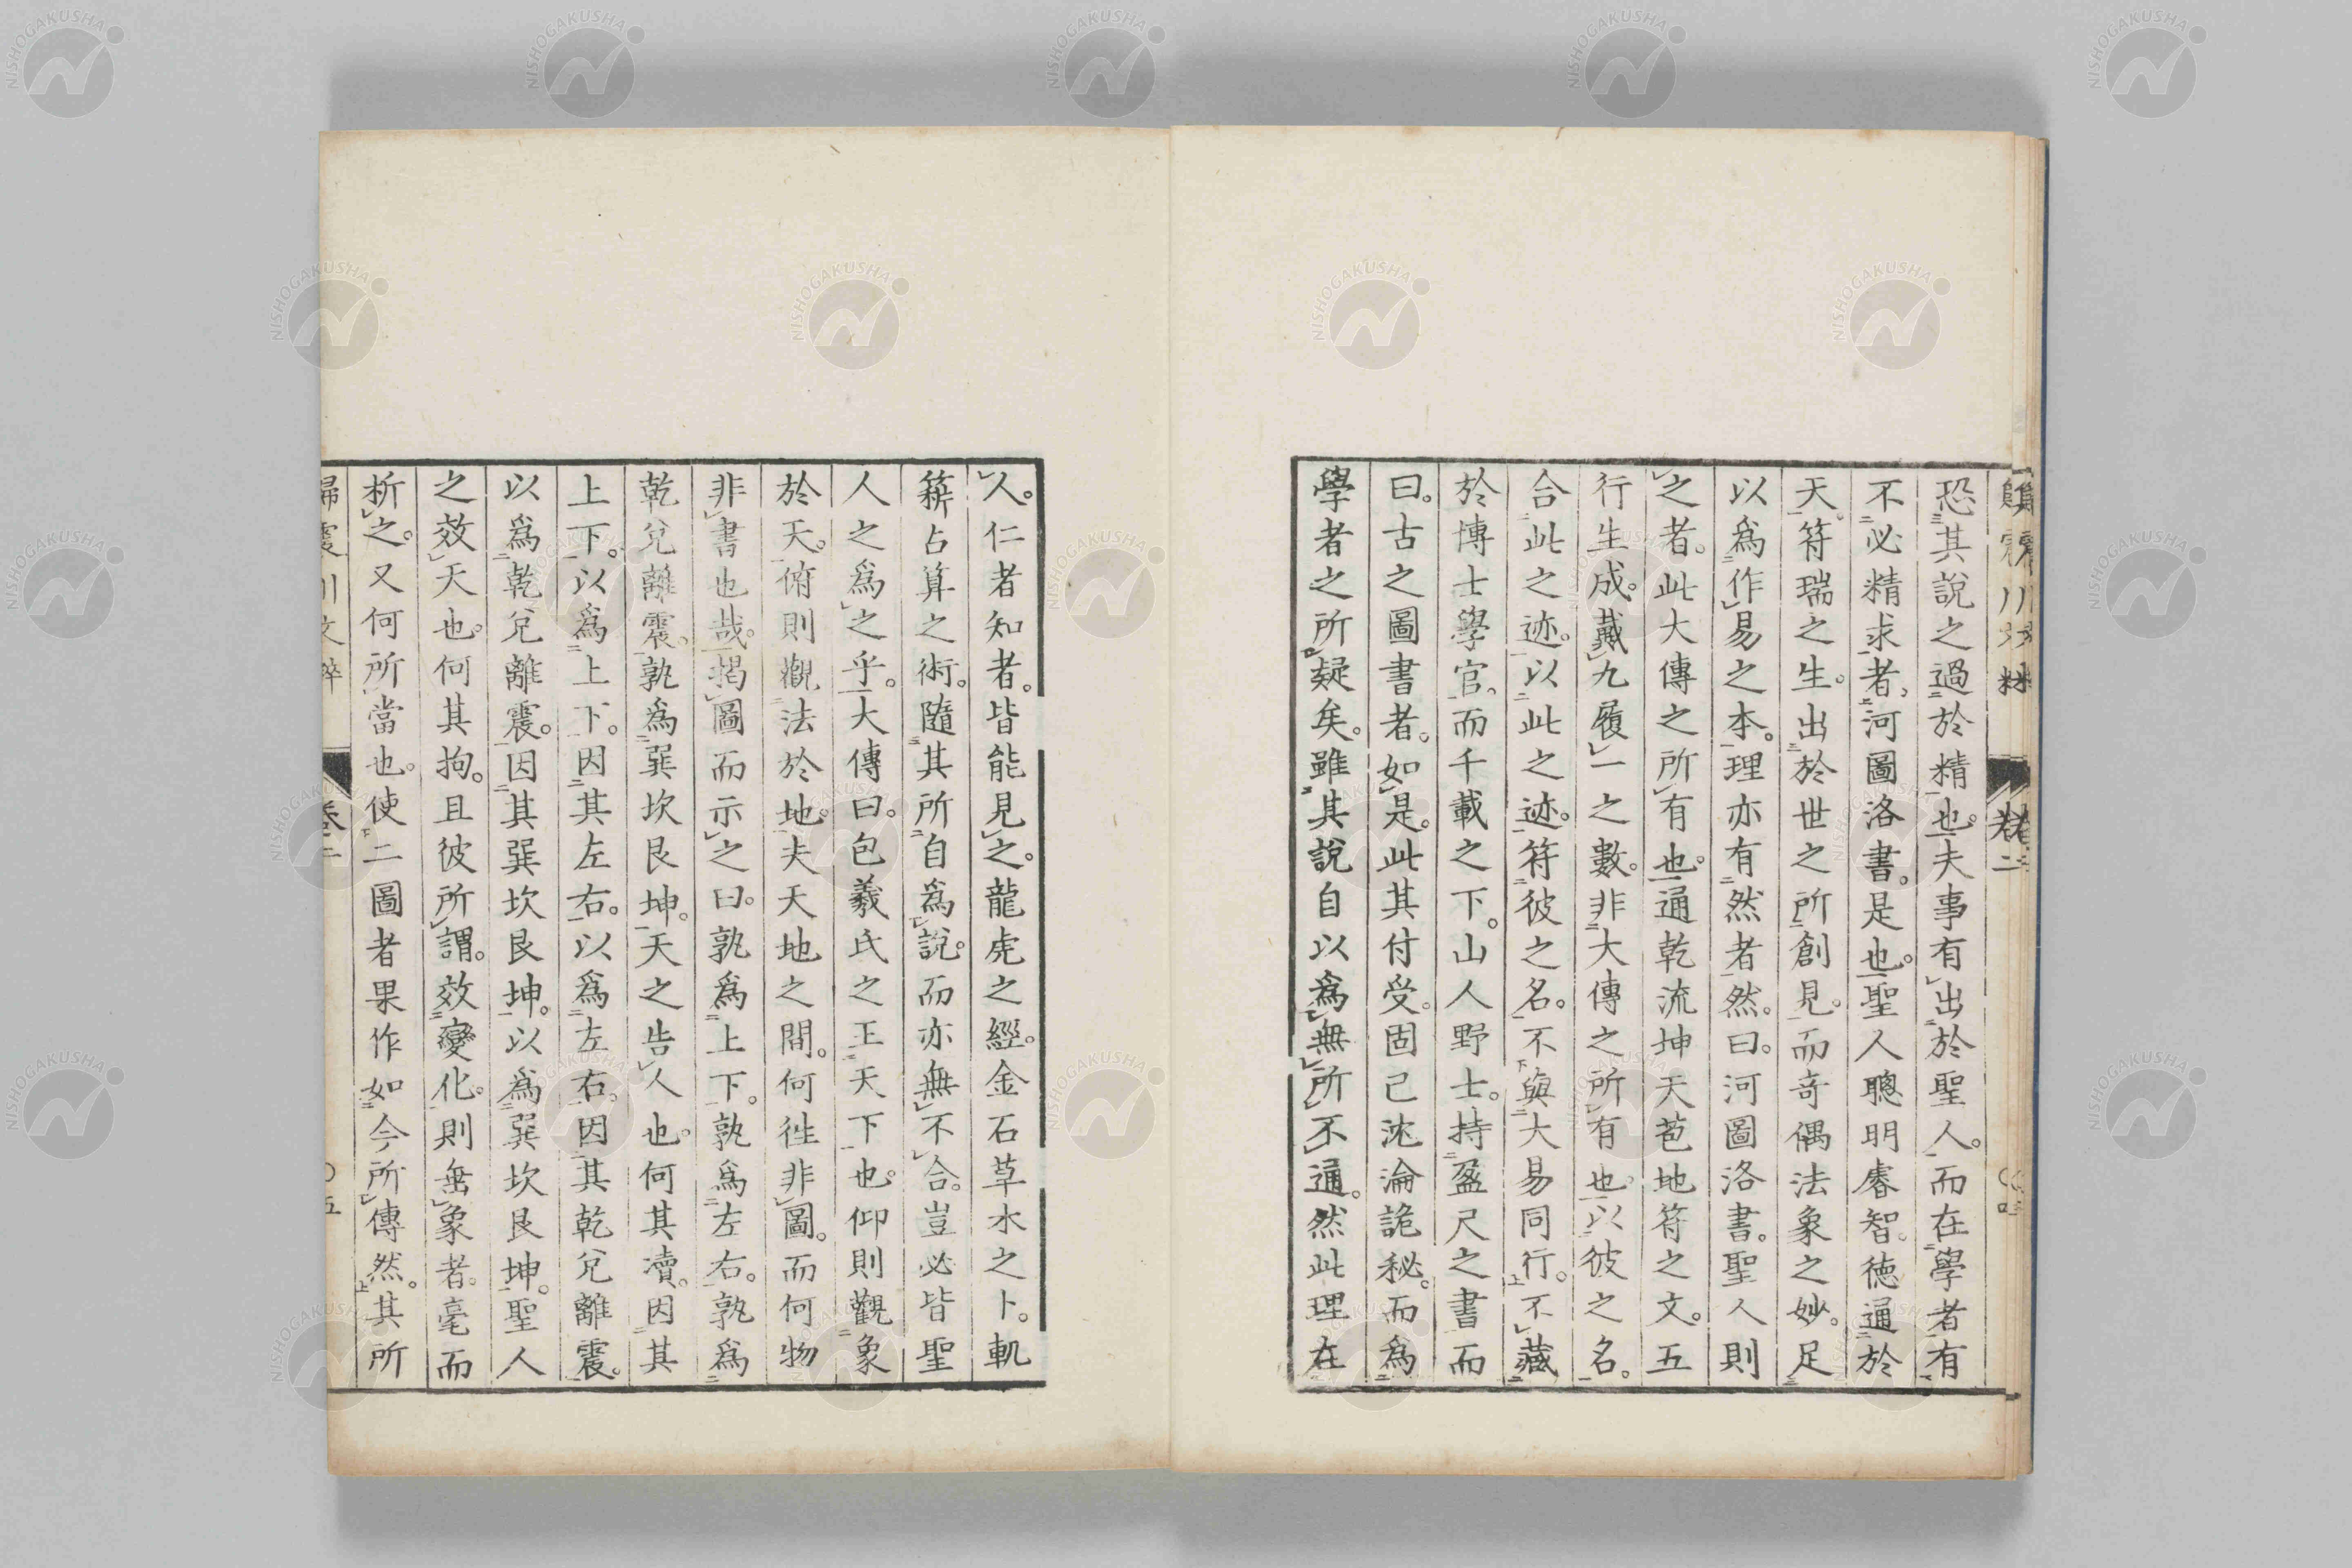 恐其說之過於精也。夫事有出於聖人。而在學者有
不必精求者、河圖洛書。是也。聖人聰明睿智。徳通於
天。符瑞之生。出於世之所創見。而竒偶法象之妙。足
以爲作易之本。理亦有然者然。曰。河圖洛書。聖人則
之者。此大傳之所有也。通乾流坤天苞地符之文。五
行生成。戴九履一之數。非大傳之所有也。以彼之名。
合此之迹。以此之迹。符彼之名。不與大易同行。不藏
於博士學官、而千載之下。山人野士。持盈尺之書而
曰。古之圖書者。如是。此其付受。固已沈淪詭秘。而爲
學者之所疑矣。雖其說自以爲無所不通。然此理在
人。仁者知者。皆能見之。龍虎之經。金石草木之卜。軌
籌占算之術。隨其所自爲說。而亦無不合。豈必皆聖
人之爲之乎。大傳曰。包羲氏之王天下也。仰則觀象
於天。俯則觀法於地。夫天地之間。何徃非圖。而何物
非書也哉。揭圖而示之曰。孰爲上下。孰爲左右。孰爲
乾兌離震。孰爲巽坎艮坤。天之告人也。何其瀆。因其
上下。以爲上下。因其左右。以爲左右。因其乾兌離震。
以爲乾兌離震。因其巽坎艮坤。以爲巽坎艮坤。聖人
之效天也。何其拘。且彼所謂。效變化。則無象者。毫而
析之。又何所當也。使二圖者果作如今所傳然。其所
歸震川文粹
卷二
〇五
NISHOGAKUSHA